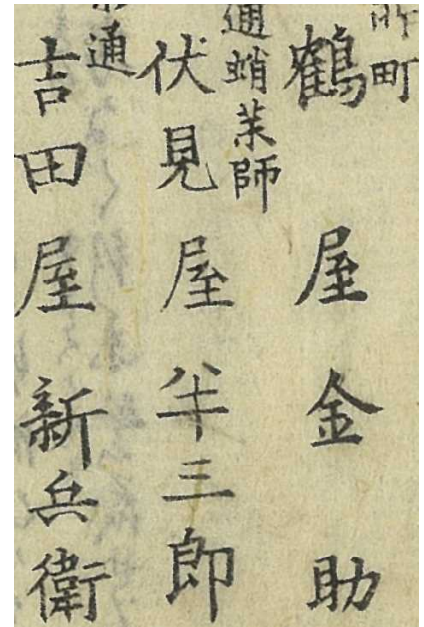 町
鶴屋金助
通蛸薬師
伏見屋半三郎
通
吉田屋新兵衛